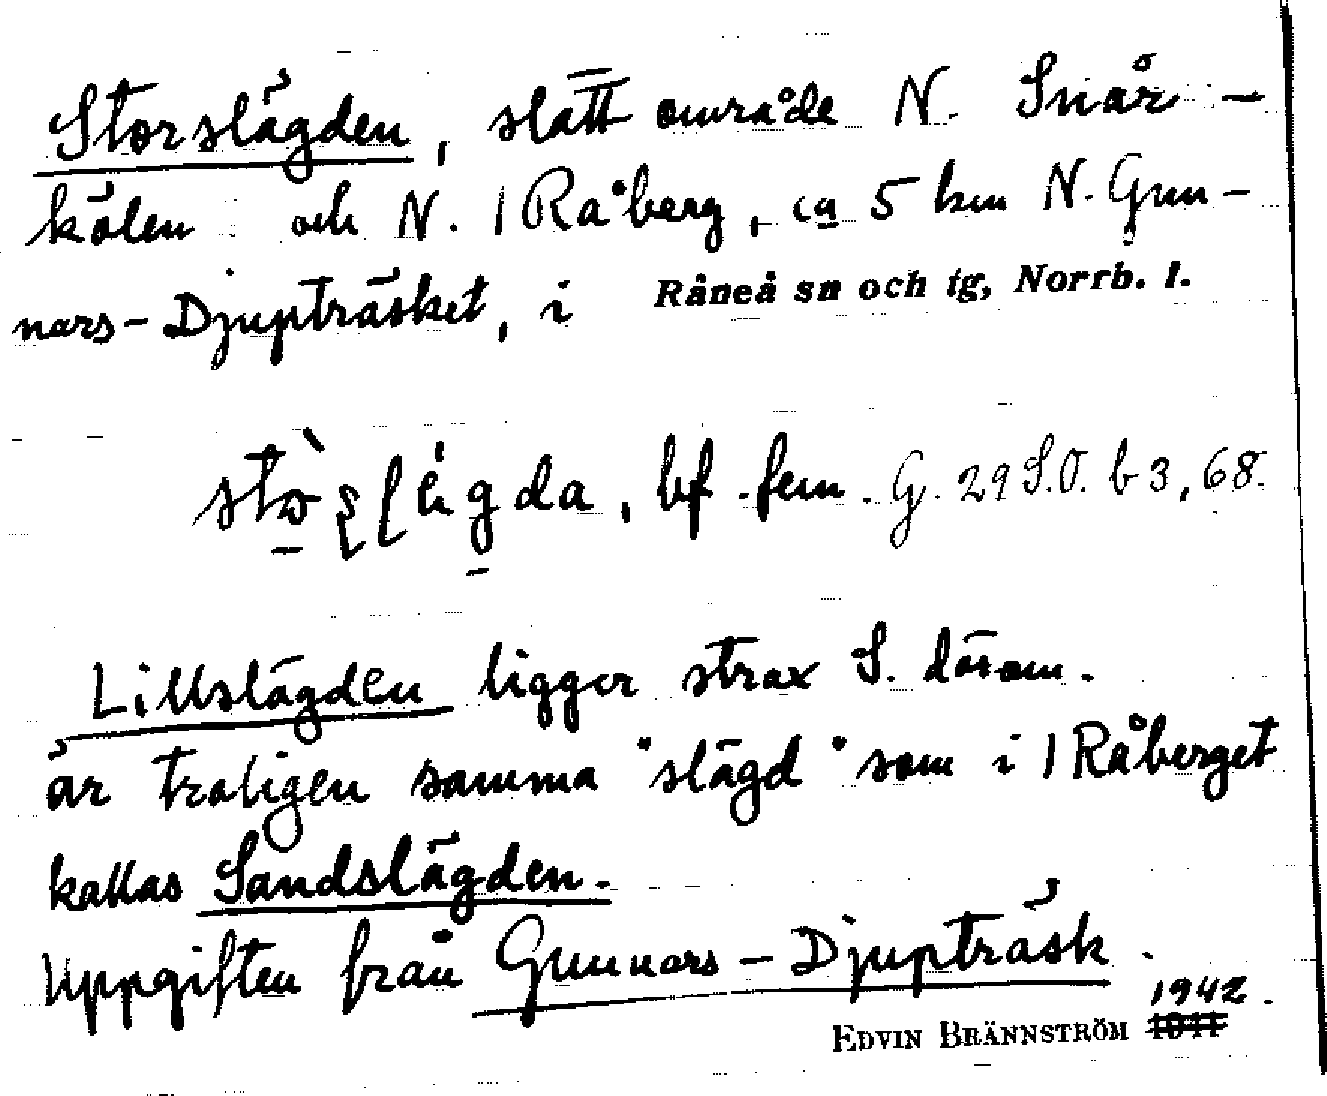 Storslägden, slåttområde N. Snår-
kölen och N. I Råberg, ca 5 km N. Gun-
nars-Djupträsket, i Råneå sn och tg, Norrb. l.
bf. fem. G. 29 S.O. b 3, 68.
Lillslägden ligger strax S. därom.
är troligen samma "slägd" som i I Råberget
kallas Sandslägden.
Uppgiften från Gunnars-Djupträsk.
1942.
EDVIN BRÄNNSTRÖM 1941